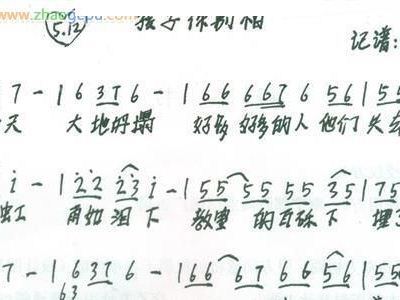 www.zhaogepu.com
5.12 孩子你别怕
记谱:
7 - | 6 3 7 6 - | 6 6 6 6 6 7 6 5 6 | 5 5
天 大地坍塌 好多好多的人他们失去
i - | 2 2 2 3 i - | 5 5 5 5 5 5 3 5 | 7 5
雨如泪下 教室的瓦砾下 埋了
7 - | 6 3 7 6 - | 6 6 6 7 6 6 5 6 | 5 5
6 3